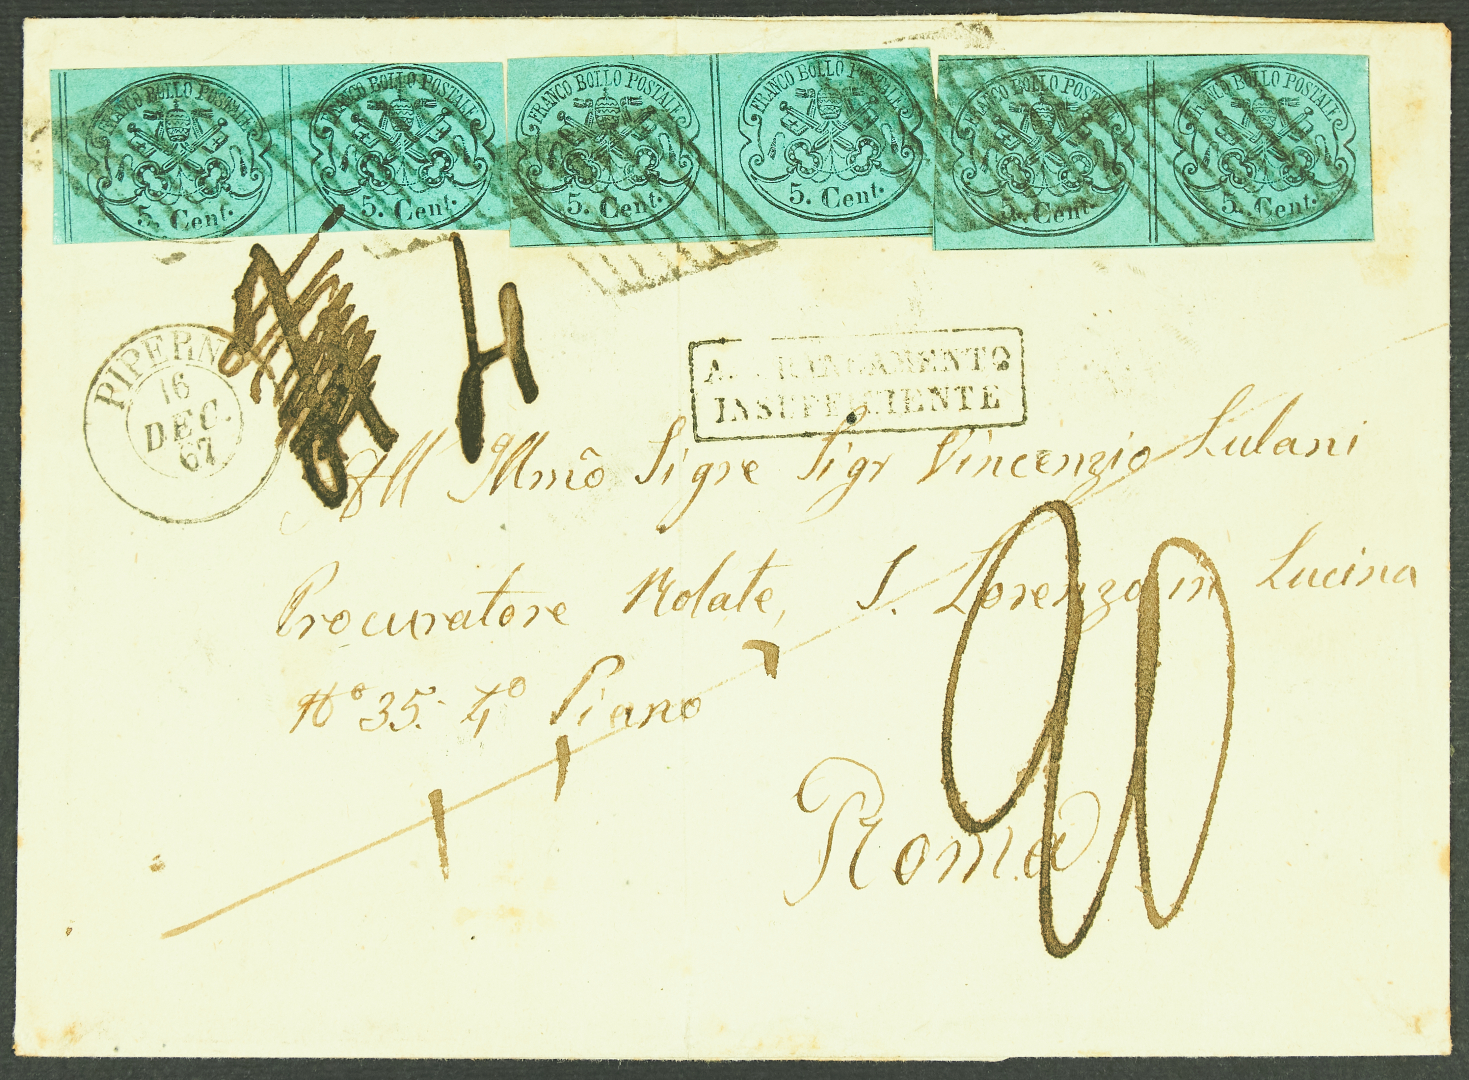 FRANCO BOLLO POSTALE
5. Cent.
FRANCO BOLLO POSTALE
5. Cent.
FRANCO BOLLO POSTALE
5. Cent.
FRANCO BOLLO POSTALE
5. Cent.
FRANCO BOLLO POSTALE
5. Cent.
FRANCO BOLLO POSTALE
5. Cent.
4
PIPERN
16
DEC.
67
INSUFFICIENTE
All Illmõ Sigre Sigr Vincenzio Lulani
Procuratore Rotale, S. Lorenzo in Lucina
N° 35. 4° Piano
Roma
90